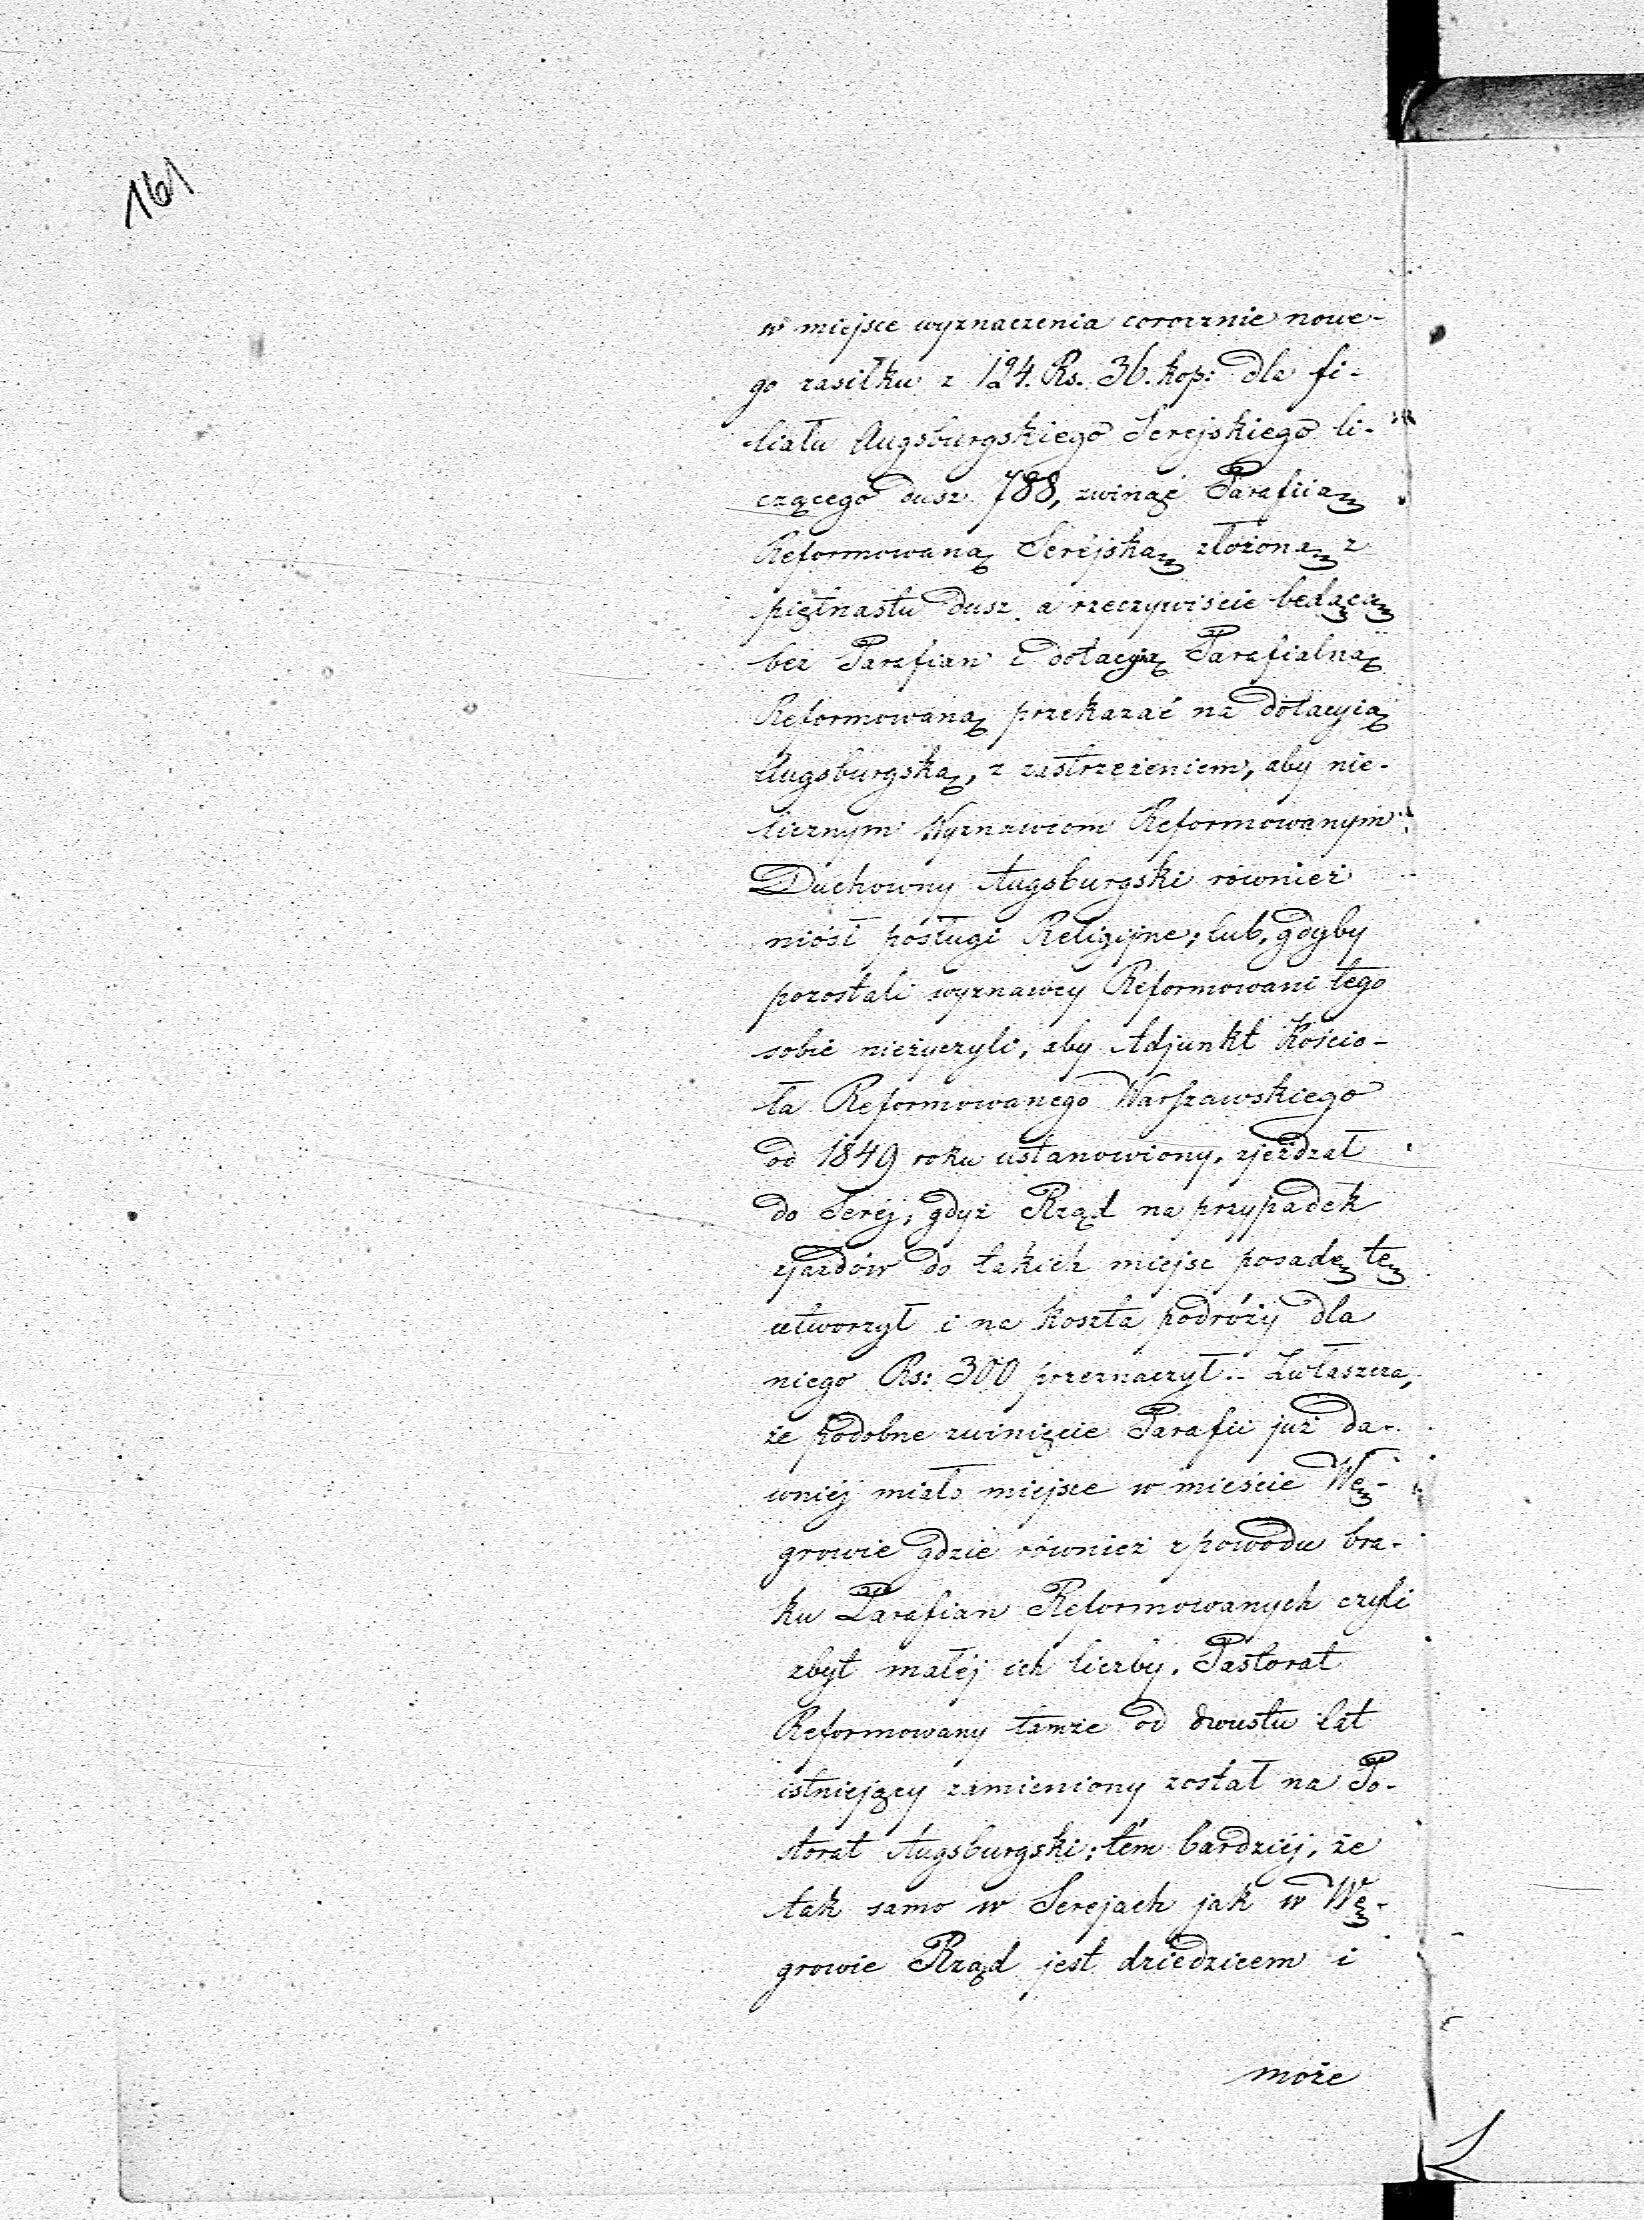 161
w miejsce wyznaczenia corocznie nowe-
go zasiłku z 124. Rs. 36. kop: dla fi-
liału Augsburgskiego Serejskiego li-
czącego dusz 788, zwinąć Parafiią
Reformowaną Serejską złożoną z
piętnastu dusz a rzeczywiście będącą
bez Parafian i dotacyią Parafialną
Reformowaną przekazać na dotacyią
Augsburgską, z zastrzeżeniem, aby nie-
licznym Wyznawcom Reformowanym
Duchowny Augsburgski również
niósł posługi Religijne; lub, gdyby
pozostali wyznawcy Reformowani tego
sobie nieżyczyli, aby Adjunkt Kościo-
ła Reformowanego Warszawskiego
od 1849 roku ustanowiony, zjeżdzał
do Serej, gdyż Rząd na przypadek
zjazdów do takich miejsc posadę tę
utworzył i na koszta podróży dla
niego Rs: 300 przeznaczył.- Zwłaszcza,
że podobne zwinięcie Parafii już da-
wniej miało miejsce w mieście Wę-
growie gdzie również z powodu bra-
ku Parafian Reformowanych czyli
zbyt małej ich liczby. Pastorat
Reformowany tamże od dwustu lat
istniejący zamieniony został na Pa-
storat Augsburgski; tém bardziéj, że
tak samo w Serejach jak w Wę-
growie Rząd jest dziedzicem i
może